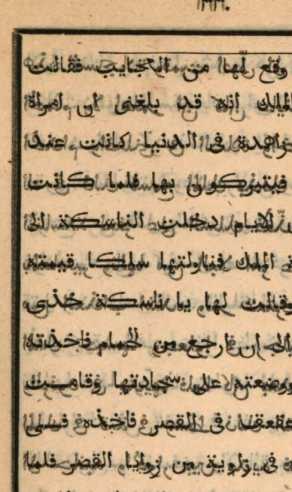 وقع لها من العجايب فقالت
الملك انه قد بلغني ان امراة
زاهدة في الدنيا كانت عند
فيتبركون بها فلما كانت
الايام دخلت الناسكة الى
الملك فناولتها سلكا قيمته
وقالت لها يا ناسكة خذي
الى ان ارجع من الحمام فاخذته
ووضعته على سجادتها وقامت
عقعق في القصر فاخذه
في زاوية من زوايا القصر فلما